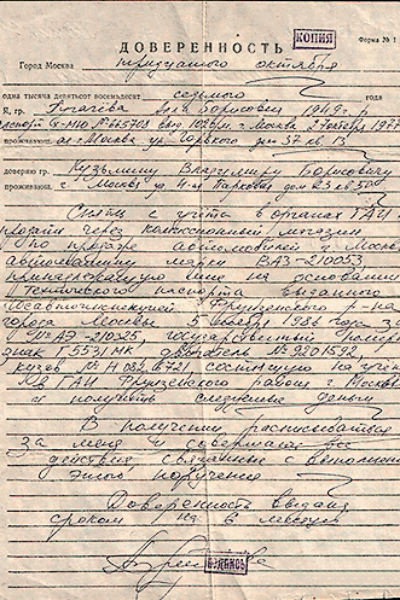 КОПИЯ
ДОВЕРЕННОСТЬ
Форма № 1
Город Москва тридцатого октября
одна тысяча девятьсот восемьдесят седьмого года
Я, гр. Алла Борисовна 1949 г. р
выд. г. Москва 1977
проживающ. г. Москва ул. Горького дом 37 кв. 13
доверяю гр. Кузьмину Владимиру Борисовичу
проживающ. г. Москва ул. 4-я Парковая дом 23 кв 50
Снять с учета в органах ГАИ и
продать через комиссионный магазин
по продаже автомобилей г. Москв
автомашину марки ВАЗ-210053
принадлежащую мне на основании
Технического паспорта выданного
Госавтоинспекцией Фрунзенского р-на
города Москвы 5 ноября 1986 года за
№ АЭ-210225, государственный номерн
знак Г5531МК двигатель № 9201592,
кузов № Н0826721, состоящую на учет
в ГАИ Фрунзенского района г. Москв
и получить следуемые деньги
В получении расписываться
за меня и совершать все
действия, связанные с выполнен
этого поручения
Доверенность выдана
сроком на 6 месяцев
ПОДПИСЬ